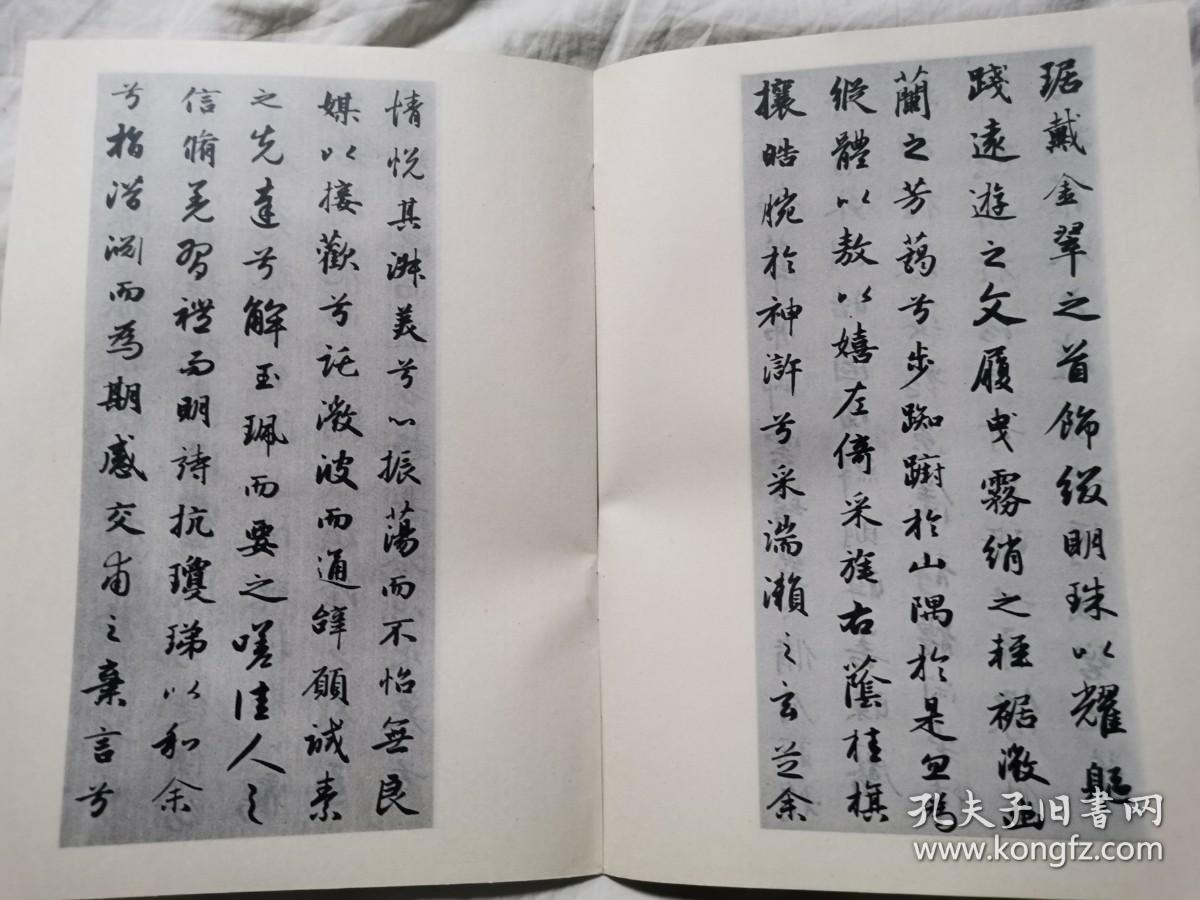 琚戴金翠之首飾綴明珠以耀軀
踐遠遊之文履曳霧綃之輕裾微幽
蘭之芳藹兮步踟躕於山隅於是忽焉
縱體以敖以嬉左倚采旄右蔭桂旗
攘皓腕於神滸兮采湍瀨之玄芝余
情悅其淑美兮心振蕩而不怡無良
媒以接歡兮託微波而通辭願誠素
之先達兮解玉珮而要之嗟佳人之
信脩羌習禮而明詩抗瓊珶以和余
兮指潛淵而為期感交甫之棄言兮
孔夫子旧书网
www.kongfz.com